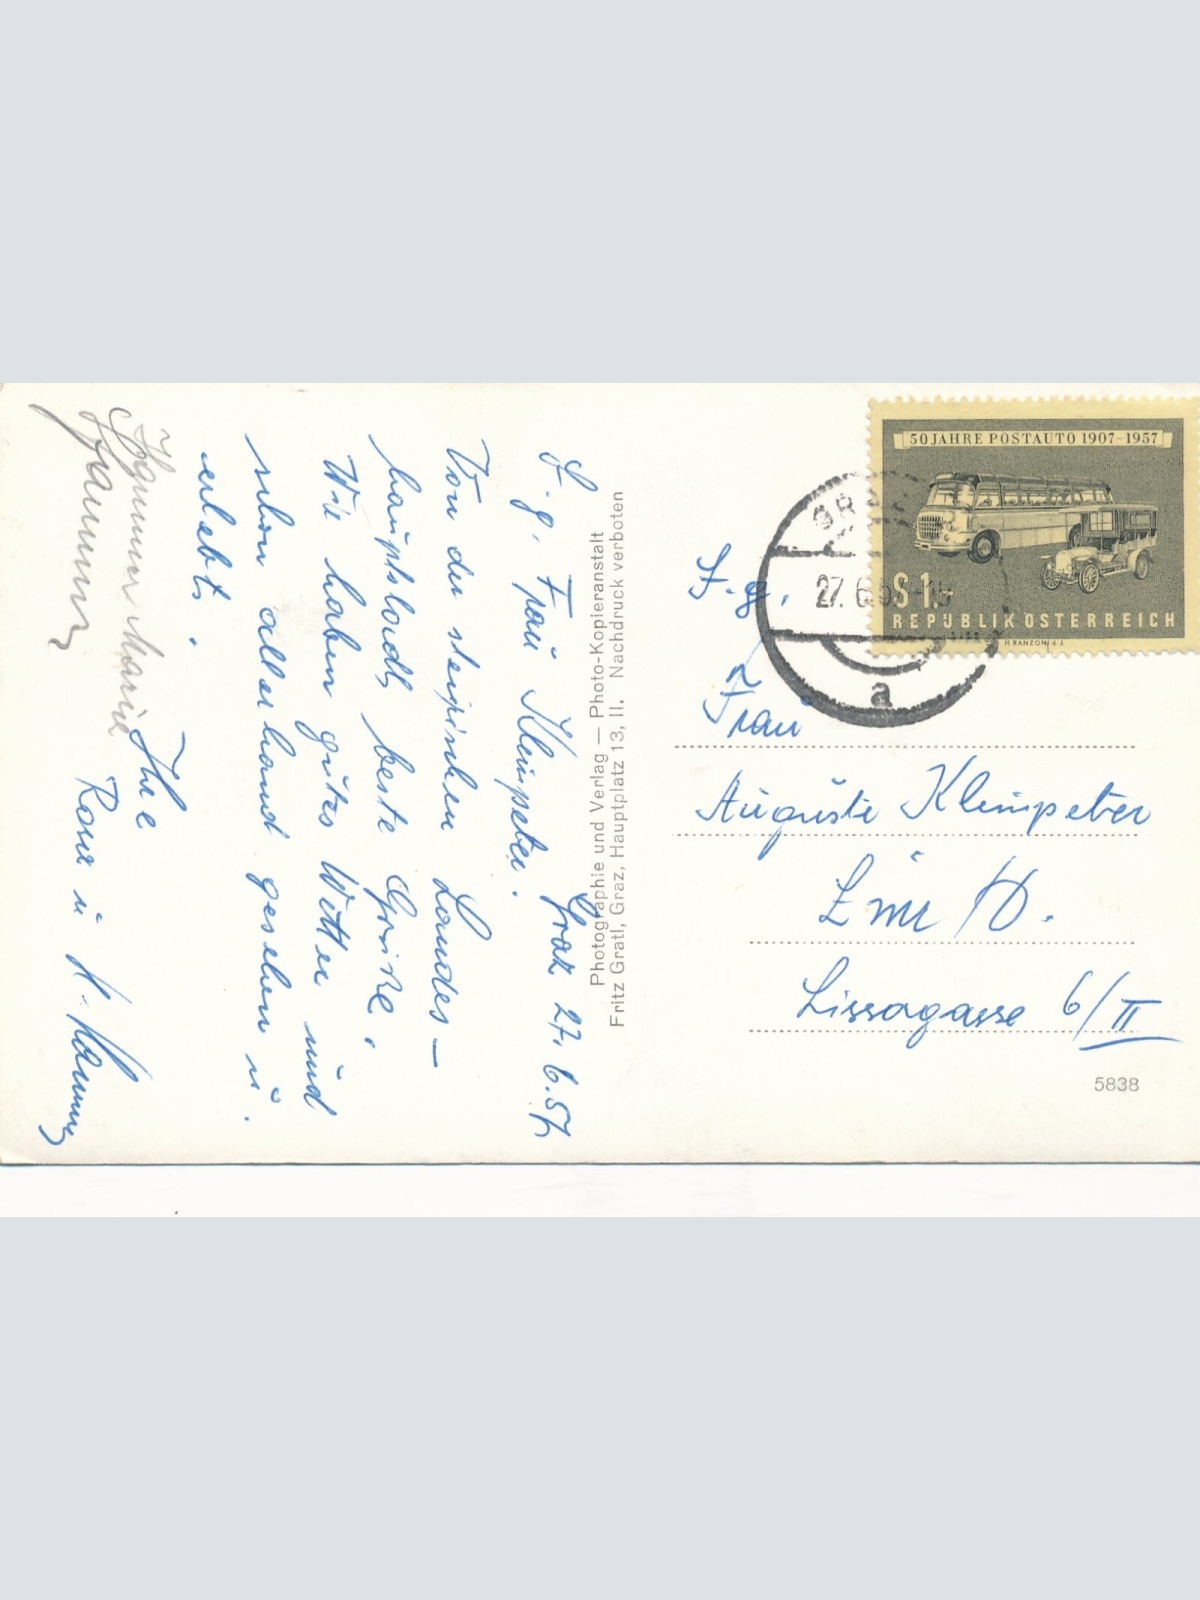 Graz 27.6.57
L. g. Frau Kleinpeter.
Von der steirischen Landes-
hauptstadt beste Grüße.
Wir haben gutes Wetter und
schon allerhand gesehen u.
erlebt.
Ihre
Rosa u.
Photographie und Verlag — Photo-Kopieranstalt
Fritz Gratl, Graz, Hauptplatz 13, II. Nachdruck verboten
50 JAHRE POSTAUTO 1907-1957
S 1.-
REPUBLIK ÖSTERREICH
H. RANZONI D. J.
27. 6.
a
Frau
Auguste Kleinpeter
Linz /D.
Lissagasse 6/II
5838